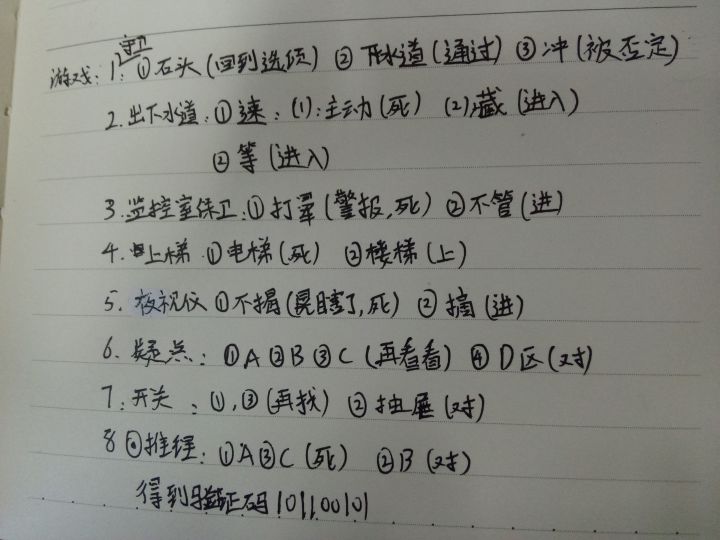 守卫
游戏: 1: ①石头(回到选项) ②下水道(通过) ③冲(被否定)
2. 出下水道: ①速: (1): 主动(死) (2)藏(进入)
②等(进入)
3. 监控室保卫: ①打晕(警报,死) ②不管(进)
4. 上梯 ①电梯(死) ②楼梯(上)
5. 夜视仪 ①不摘(晃瞎了,死) ②摘(进)
6. 疑点: ①A ②B ③C(再看看) ④D区(对)
7. 开关: ①,③(再找) ②抽屉(对)
8 推理: ①A③C(死) ②B(对)
得到验证码10110010|